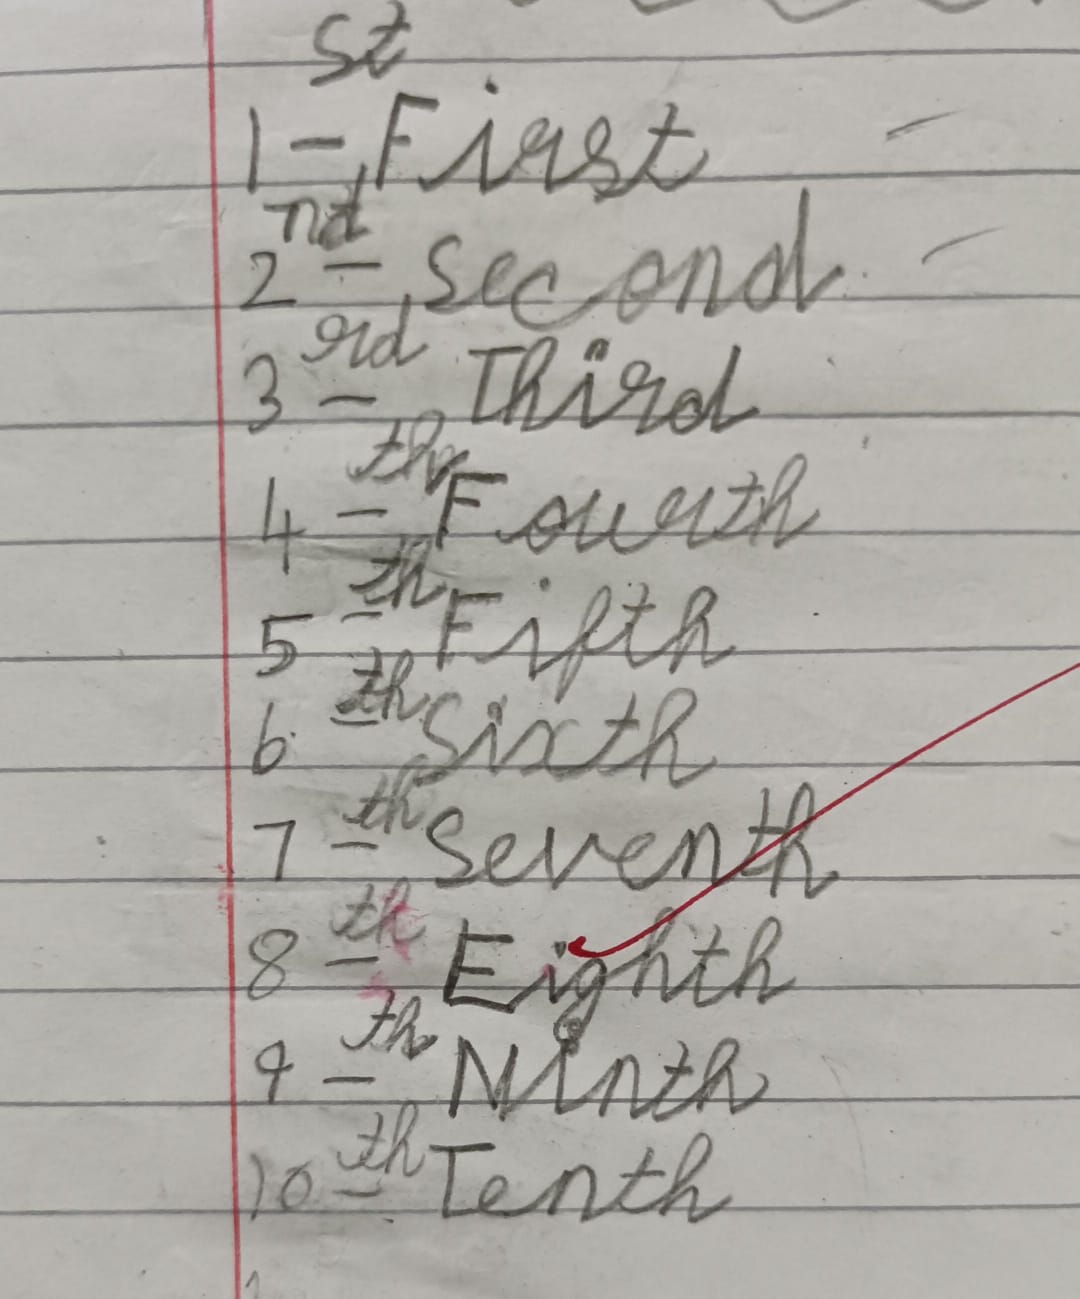 1st - First
2nd - Second
3rd - Third
4th - Fourth
5th - Fifth
6th - Sixth
7th - Seventh
8th - Eighth
9th - Ninth
10th - Tenth